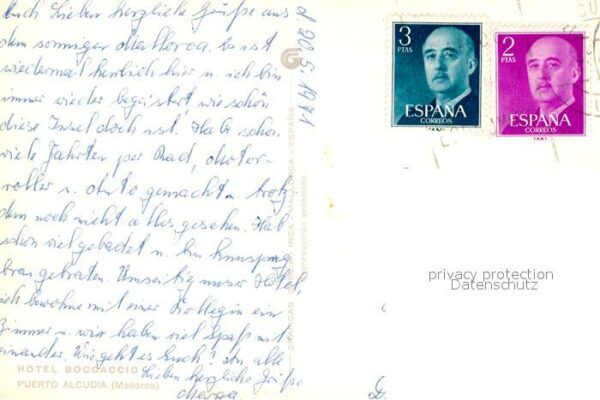 Euch Lieben herzliche Grüße aus
dem sonnigen Mallorca. Es ist
wiedermal herrlich hier u. ich bin
immer wieder begeistert, wie schön
diese Insel doch ist. Habe schon
viele Fahrten per Rad, Motor-
roller u. Auto gemacht u. trotz
dem noch nicht alles gesehen. Hab
schon viel gebadet u. bin knusprig
braun gebraten. Umseitig unser Hotel,
ich bewohne mit einer Kollegin ein
Zimmer u. wir haben viel Spaß mit
einander. Wie geht es Euch? An alle
Lieben herzliche Grüße
HOTEL BOCCACCIO
PUERTO ALCUDIA (Mallorca)
INCA (MALLORCA - ESPAÑA)
3
PTAS
ESPAÑA
CORREOS
2
PTAS
ESPAÑA
CORREOS
privacy protection
Datenschutz